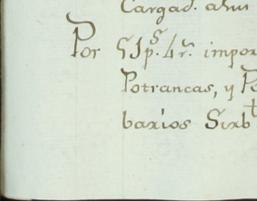 Cargad. a
Por 51p.s 4r.s impor
Potrancas, y Po
barios Sirb